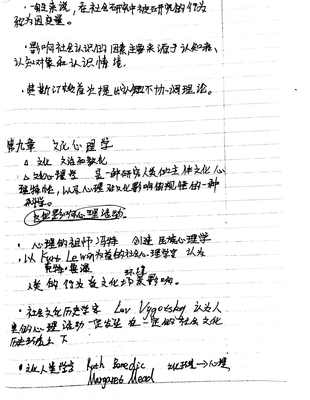 ·一般来说，在社会研究中被研究的行为
称为因变量。
·影响社会认识的因素主要来源于认知者，
认知对象和认识情境.
·费斯汀格首次提出认知不协调理论。
第九章 文化心理学
△ 文化 文治和教化
△ 文化心理学 是一种研究人类的主体文化心
理特性，以及心理和文化影响的规律的一种
科学。
文化影响心理活动.
·心理的祖师冯特 创造民族心理学
·以Kurt Lewin为首的社会心理学家 认为
人类的行为在文化环境影响。
·社会文化历史学家 Lev Vygotsky 认为人
类的心理活动一定发生在一定的社会文化
历史
下
·文化人类学者 Ruth Benedic 文化环境→心理
Margaret Mead